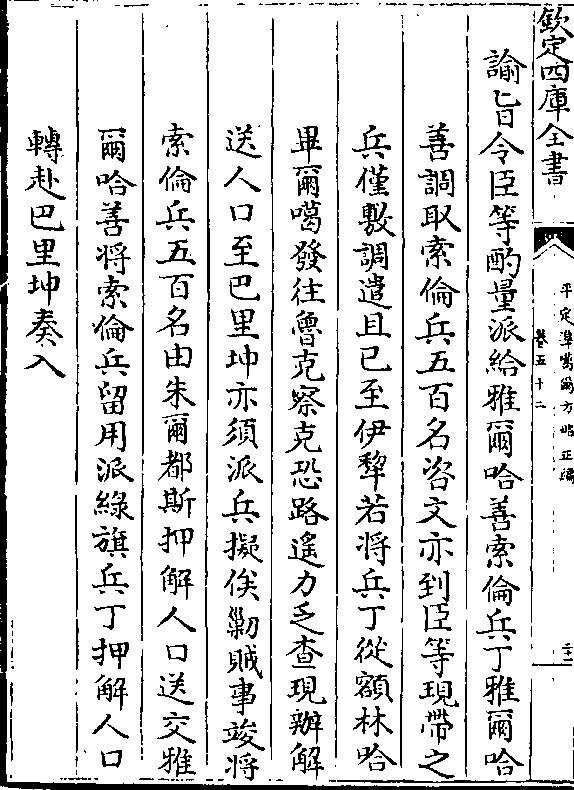 欽定四庫全書
平定準噶爾方略正編
卷五十二
諭旨令臣等酌量派給雅爾哈善索倫兵丁雅爾哈
善調取索倫兵五百名咨文亦到臣等現帶之
兵僅敷調遣且已至伊犂若將兵丁從額林哈
畢爾噶發往魯克察克恐路遙力乏查現辦解
送人口至巴里坤亦須派兵擬俟勦賊事竣將
索倫兵五百名由朱爾都斯押解人口送交雅
爾哈善將索倫兵留用派綠旗兵丁押解人口
轉赴巴里坤奏入